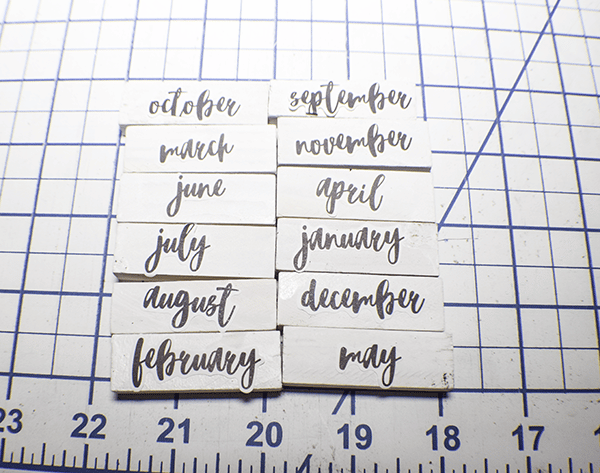 october september
march november
june april
july january
august december
february may
23 22 21 20 19 18 17